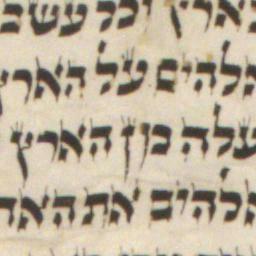 בארץ וכל עשב
אלהים על הארץ
עלה מן הארץ
אלהים את האד